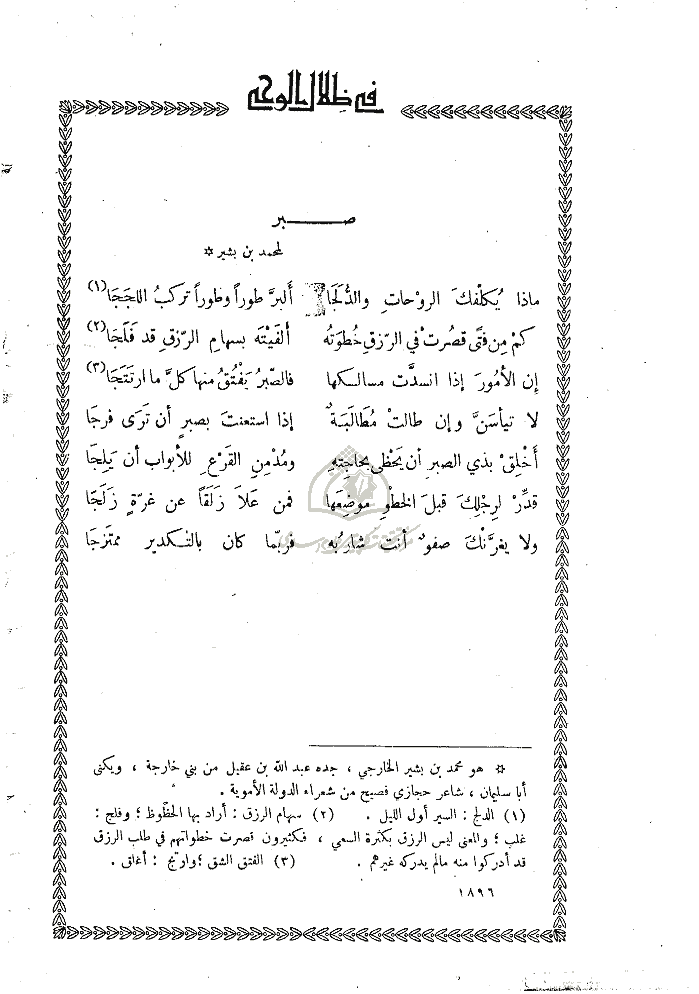 في ظلال الوحي
صبر
لمحمد بن بشير *
ماذا يُكلّفكَ الروْحاتِ والدُّلَجَا أَلبرَّ طوراً وطوراً تركبُ اللجَجَا (١)
كمْ مِن فتًى قصُرتْ في الرّزقِ خُطوَتُه ألفَيْتَه بسهامِ الرّزقِ قد فَلَجَا (٢)
إن الأمُورَ إذا انسدَّت مسالكها فالصّبرُ يَفْتُقُ منها كلَّ ما ارتَتَجَا (٣)
لا تيأسَنَّ وإن طالتْ مُطالَبَةٌ إذا استعنتَ بصبرٍ أن تَرَى فرجا
أَخلِقْ بذي الصبرِ أن يَحْظى بحاجتِهِ ومُدْمنِ القَرْعِ للأبواب أن يَلِجَا
قدِّرْ لرِجْلِكَ قبلَ الخطْوِ موْضِعَها فمن علاَ زلَقاً عن غرةٍ زَلَجَا
ولا يغرنْكَ صفوٌ أنت شاربُه فربّما كان بالتكدير ممتزجا
* هو محمد بن بشير الخارجي ، جده عبد الله بن عقيل من بني خارجة ، ويكنى
أبا سليمان ، شاعر حجازي فصيح من شعراء الدولة الأموية .
(١) الدلج : السير أول الليل . (٢) سهام الرزق : أراد بها الحظوظ ؛ وفلج :
غلب ؛ والمعنى ليس الرزق بكثرة السعي ، فكثيرون قصرت خطواتهم في طلب الرزق
قد أدركوا منه مالم يدركه غيرهم . (٣) الفتق الشق ؛ وارتتج : أغلق .
١٨٩٦